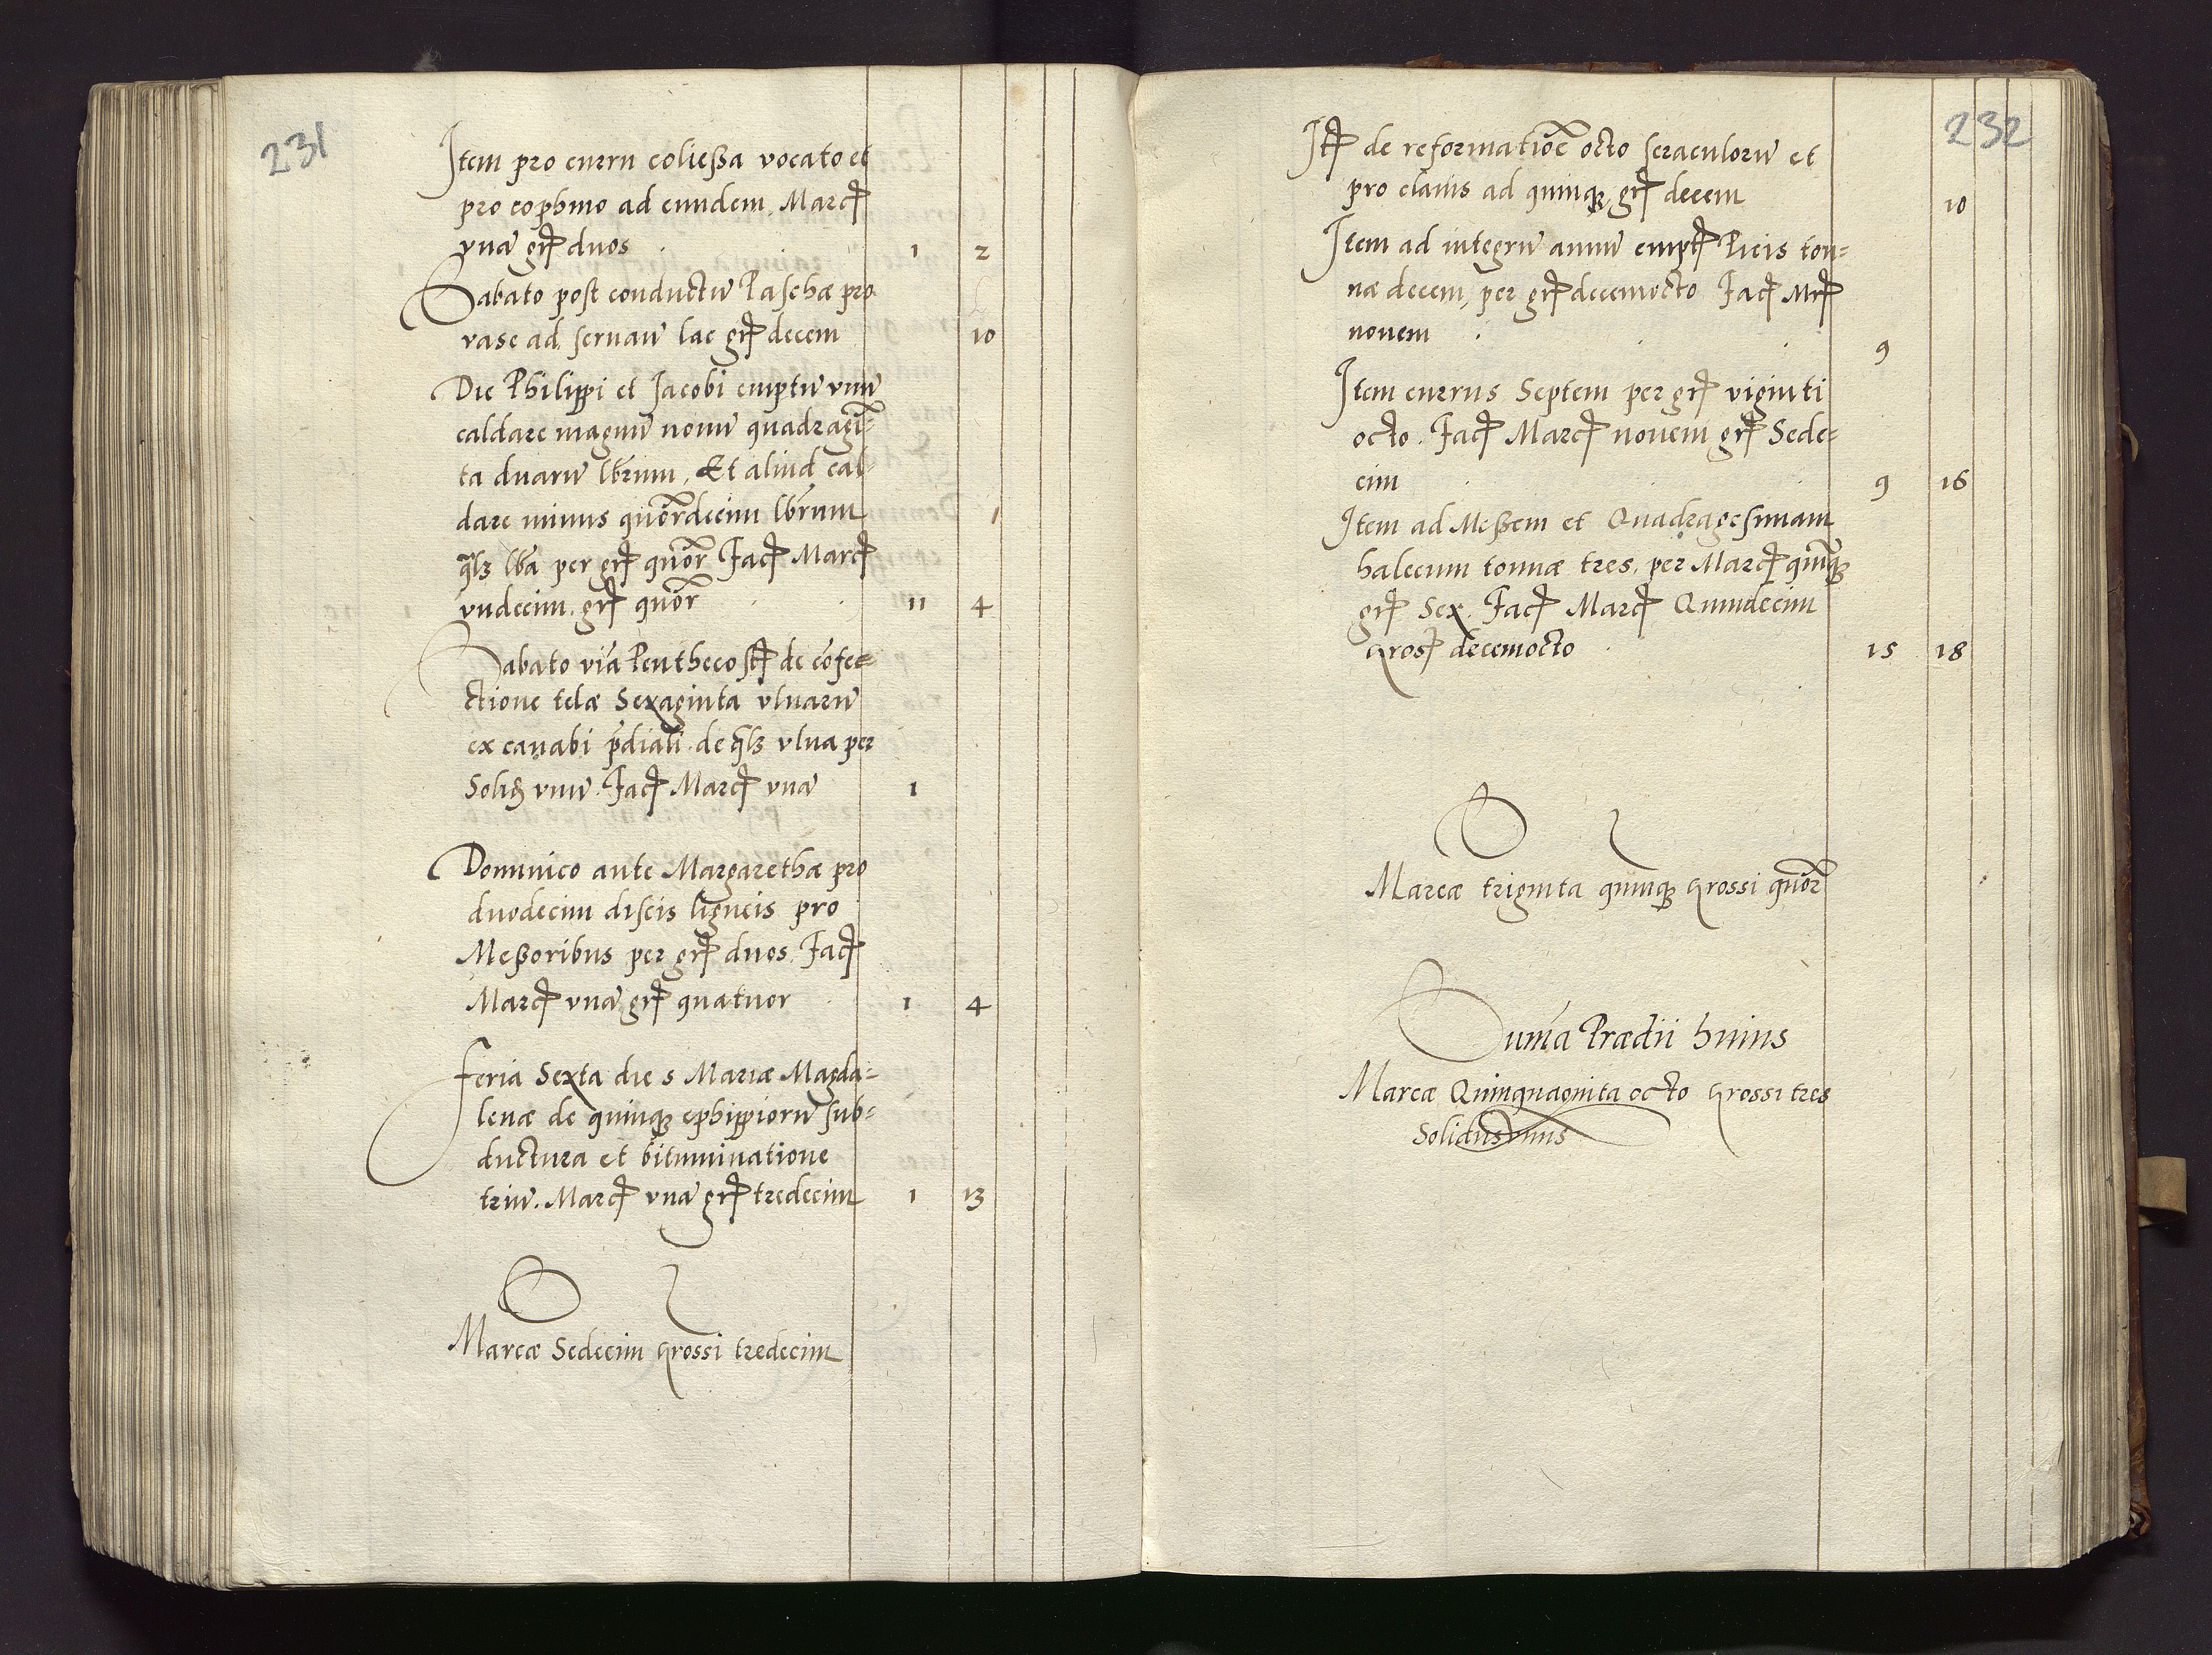 231
Item pro curru coliessa vocato et
pro cophino ad eundem. Marc
vnā gr duos 1 2
Sabato post conductū Paschæ pro
vase ad seruan̄ lac gr decem 10
Die Philippi et Jacobi emptū vnū
caldare magnū nouū quadragī-
ta duarū lbrum, Et aliud cal-
dare minus quordecim lbrum
qlz lba per gr quor Fac Marc
vndecim. gr quor 11 4
Sabato via Penthecost de cōfe-
ctione telæ Sexaginta vlnarū
ex canabi p̄diali. de qlz vlna per
Solid vnū. Fac Marc vnā 1
Dominico ante Margarethæ pro
duodecim discis ligneis pro
Messoribus per gr duos. Fac
Marc vnā gr quatuor 1 4
Feria Sexta die s Mariæ Magda-
lenæ de quinq ephippiorū sub-
ductura et bituminatione
triū. Marc vnā gr tredecim 1 13
Marcæ Sedecim grossi tredecim
232
It de reformatiōe octo seraculorū et
pro clauis ad quinq gr decem 10
Item ad integrū annū empt Picis ton-
næ decem, per gr decemocto Fac Mr
nouem 9
Item currus Septem per gr viginti
octo. Fac Marc nouem gr Sede-
cim 9 16
Item ad Messem et Quadragesimam
halecum tonnæ tres. per Marc quinq
gr Sex. Fac Marc Quindecim
gros decemocto 15 18
Marcæ triginta quinq grossi quor
Suma Prædii huius
Marcæ Quinquaginta octo grossi tres
Solidus vnus